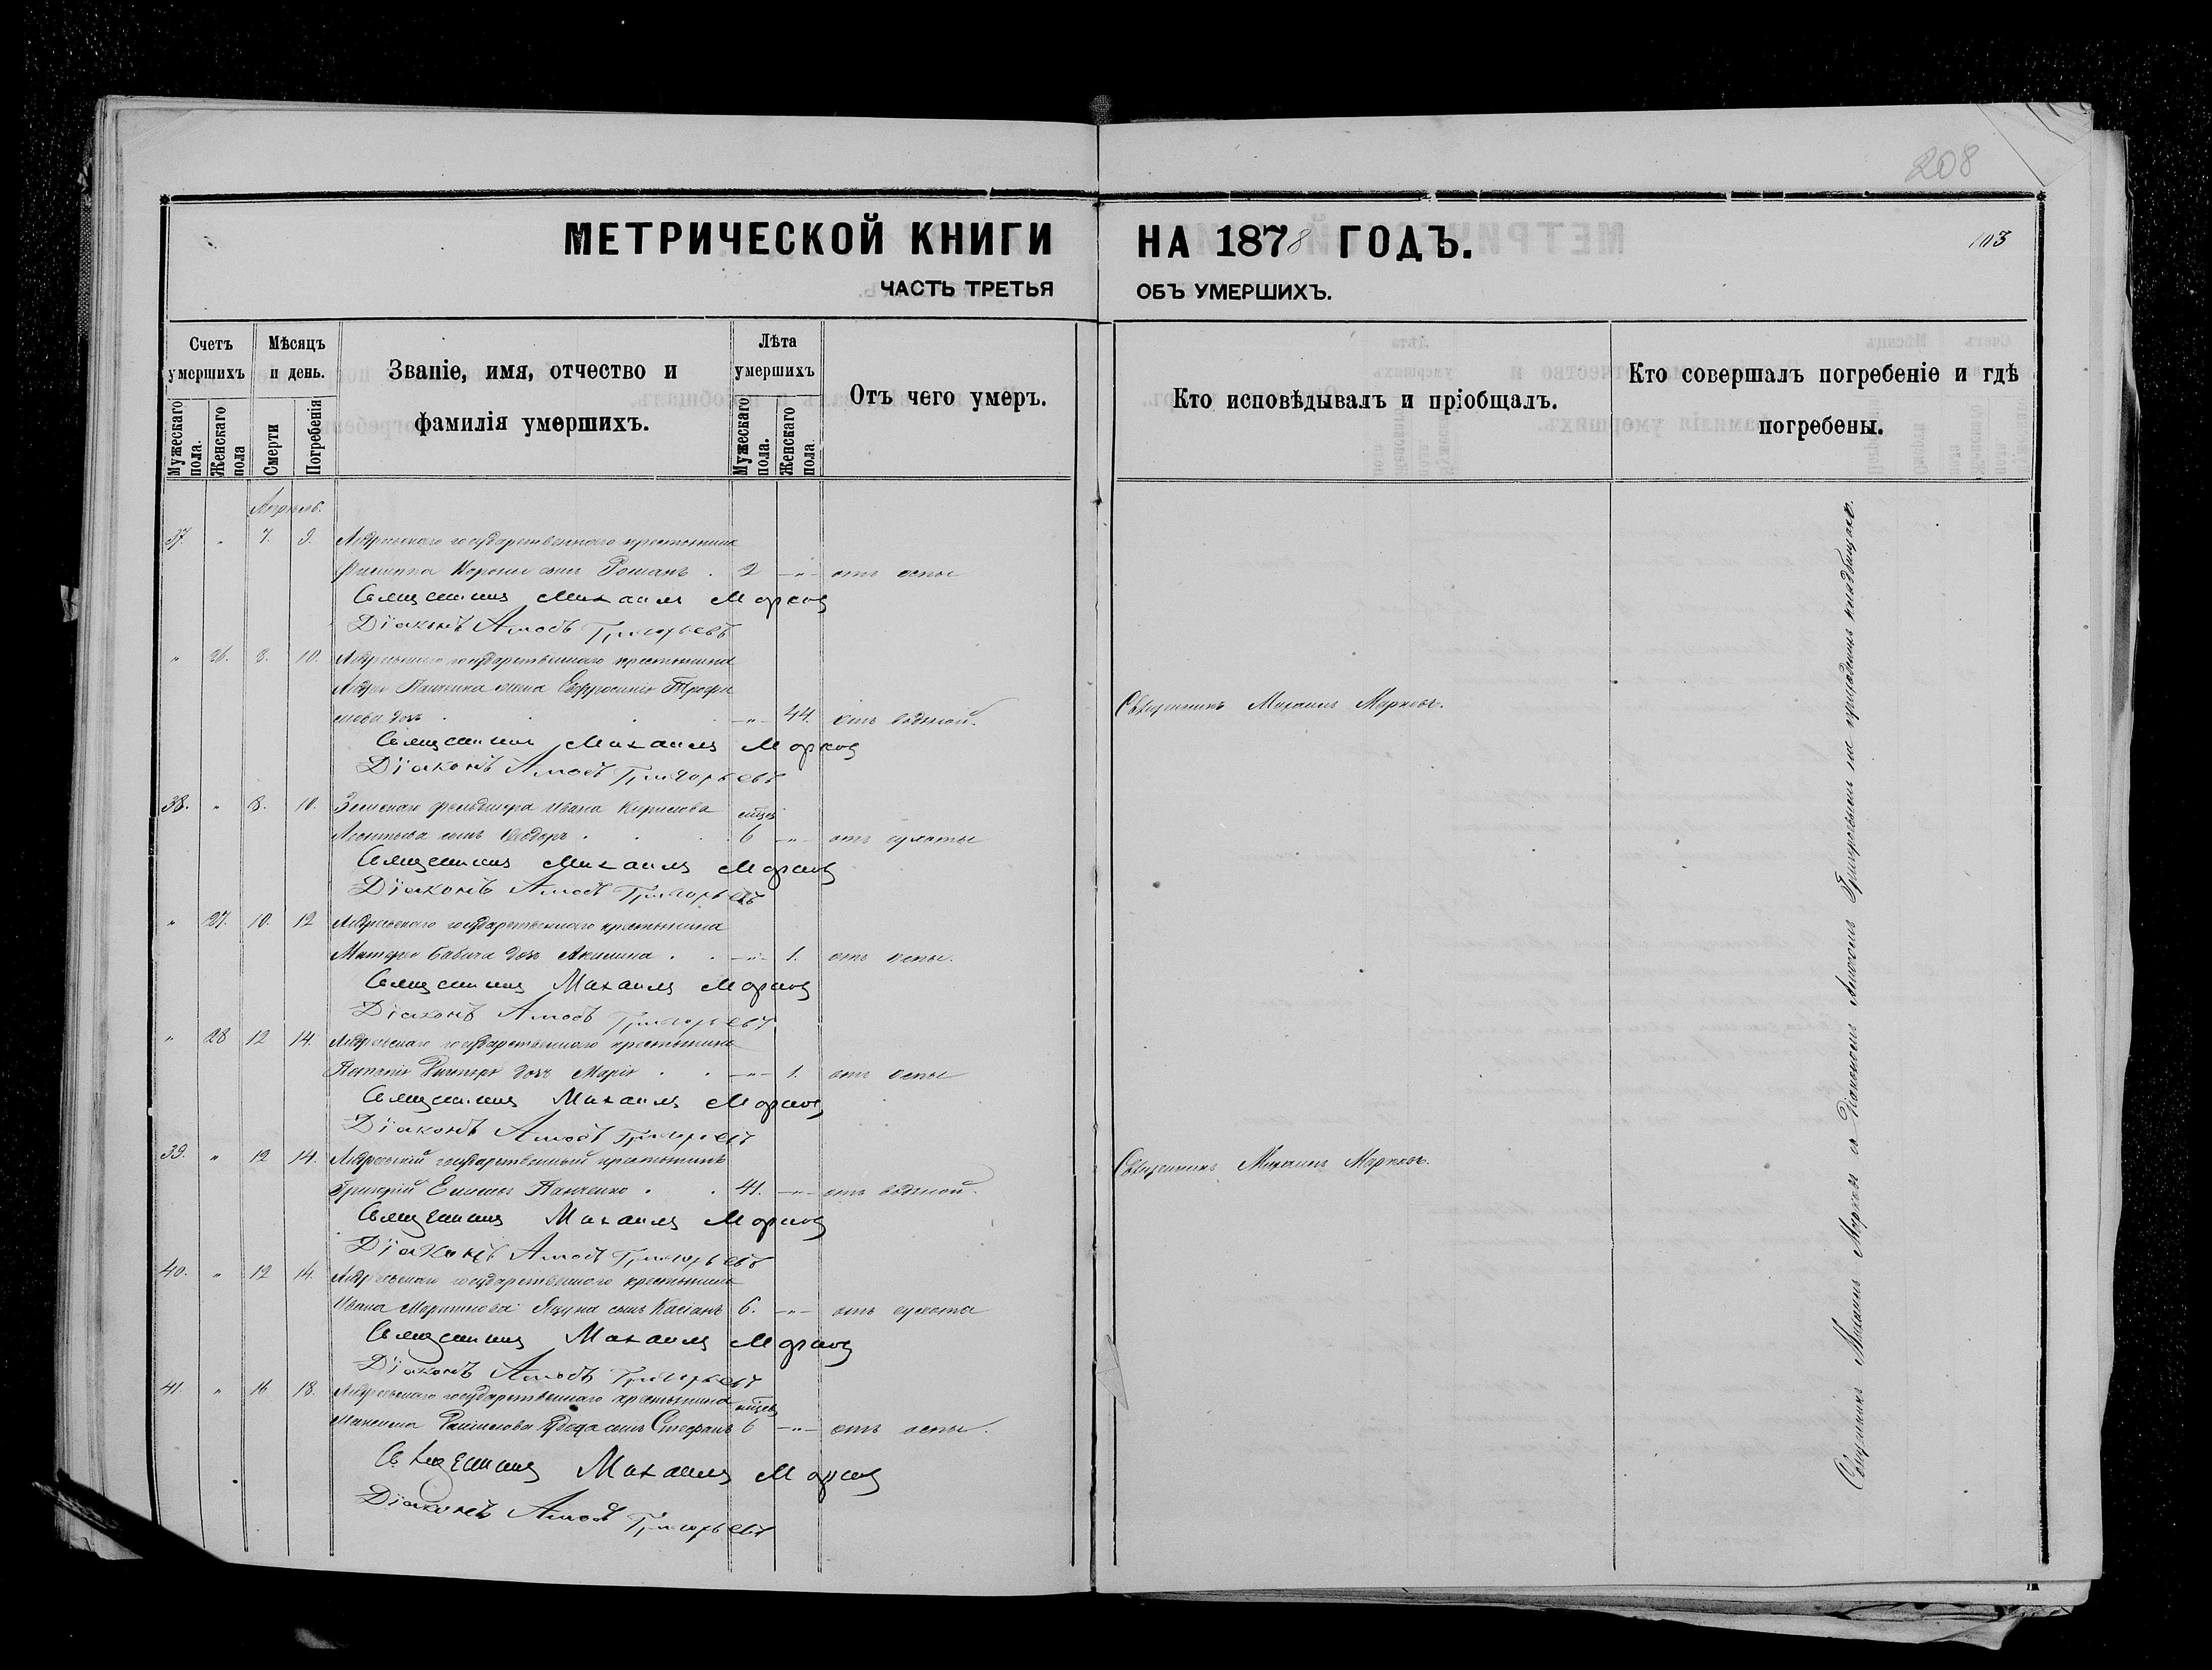 208
МЕТРИЧЕСКОЙ КНИГИ НА 1878 ГОДЪ.
103
ЧАСТЬ ТРЕТЬЯ ОБЪ УМЕРШИХЪ.
Счетъ умершихъ
Мужескаго пола.
Женскаго пола
Мѣсяцъ и день.
Смерти
Погребенія
Званіе, имя, отчество и фамилія умершихъ.
Лѣта умершихъ
Мужескаго пола.
Женскаго пола.
Отъ чего умеръ.
Кто исповѣдывалъ и пріобщалъ.
Кто совершалъ погребеніе и гдѣ погребены.
Апрель.
37. " 7. 9. государственного крестьянина
сынъ Романъ . 2 -"- отъ оспы
Священникъ Михаилъ Марковъ
Діаконъ Амосъ Григорьевъ
" 26. 8. 10. государственного крестьянина
Панченка жена Евфросинія Трофи
мова дочь -"- 44. отъ водяной.
Священникъ Михаилъ Марковъ.
Священникъ Михаилъ Марковъ
Діаконъ Амосъ Григорьевъ
38. " 8. 10. Земскаго фельдшера Ивана Кирилова мѣсяц
Леонтьева сынъ Ѳеодоръ . 6 -"- отъ сухоты
Священникъ Михаилъ Марковъ
Діаконъ Амосъ Григорьевъ
" 27. 10. 12 государственного крестьянина
Бабича дочь Акилина . -"- 1. отъ оспы.
Священникъ Михаилъ Марковъ
Діаконъ Амосъ Григорьевъ
" 28 12 14. государственного крестьянина
дочь Марія . -"- 1. отъ оспы
Священникъ Михаилъ Марковъ
Діаконъ Амосъ Григорьевъ
39. " 12 14. государственный крестьянинъ
Григорій Панченко . 41. -"- отъ водяной.
Священникъ Михаилъ Марковъ.
Священникъ Михаилъ Марковъ
Діаконъ Амосъ Григорьевъ
40. " 12 14. государственного крестьянина
Ивана Мартинова сынъ Касіанъ 6. -"- отъ сухота
Священникъ Михаилъ Марковъ
Діаконъ Амосъ Григорьевъ
41. " 16 18. государственного крестьянина мѣсяц
Максима сынъ Стефанъ 6 -"- отъ оспы.
Священникъ Михаилъ Марковъ
Діаконъ Амосъ Григорьевъ
Священникъ Михаилъ Марковъ съ Діакономъ Амосомъ Григорьевымъ на приходскомъ кладбищѣ.